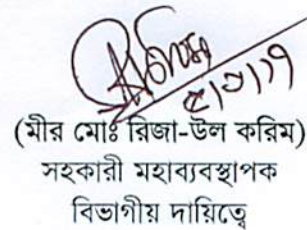 (মীর মোঃ রিজা-উল করিম)
সহকারী মহাব্যবস্থাপক
বিভাগীয় দায়িত্বে